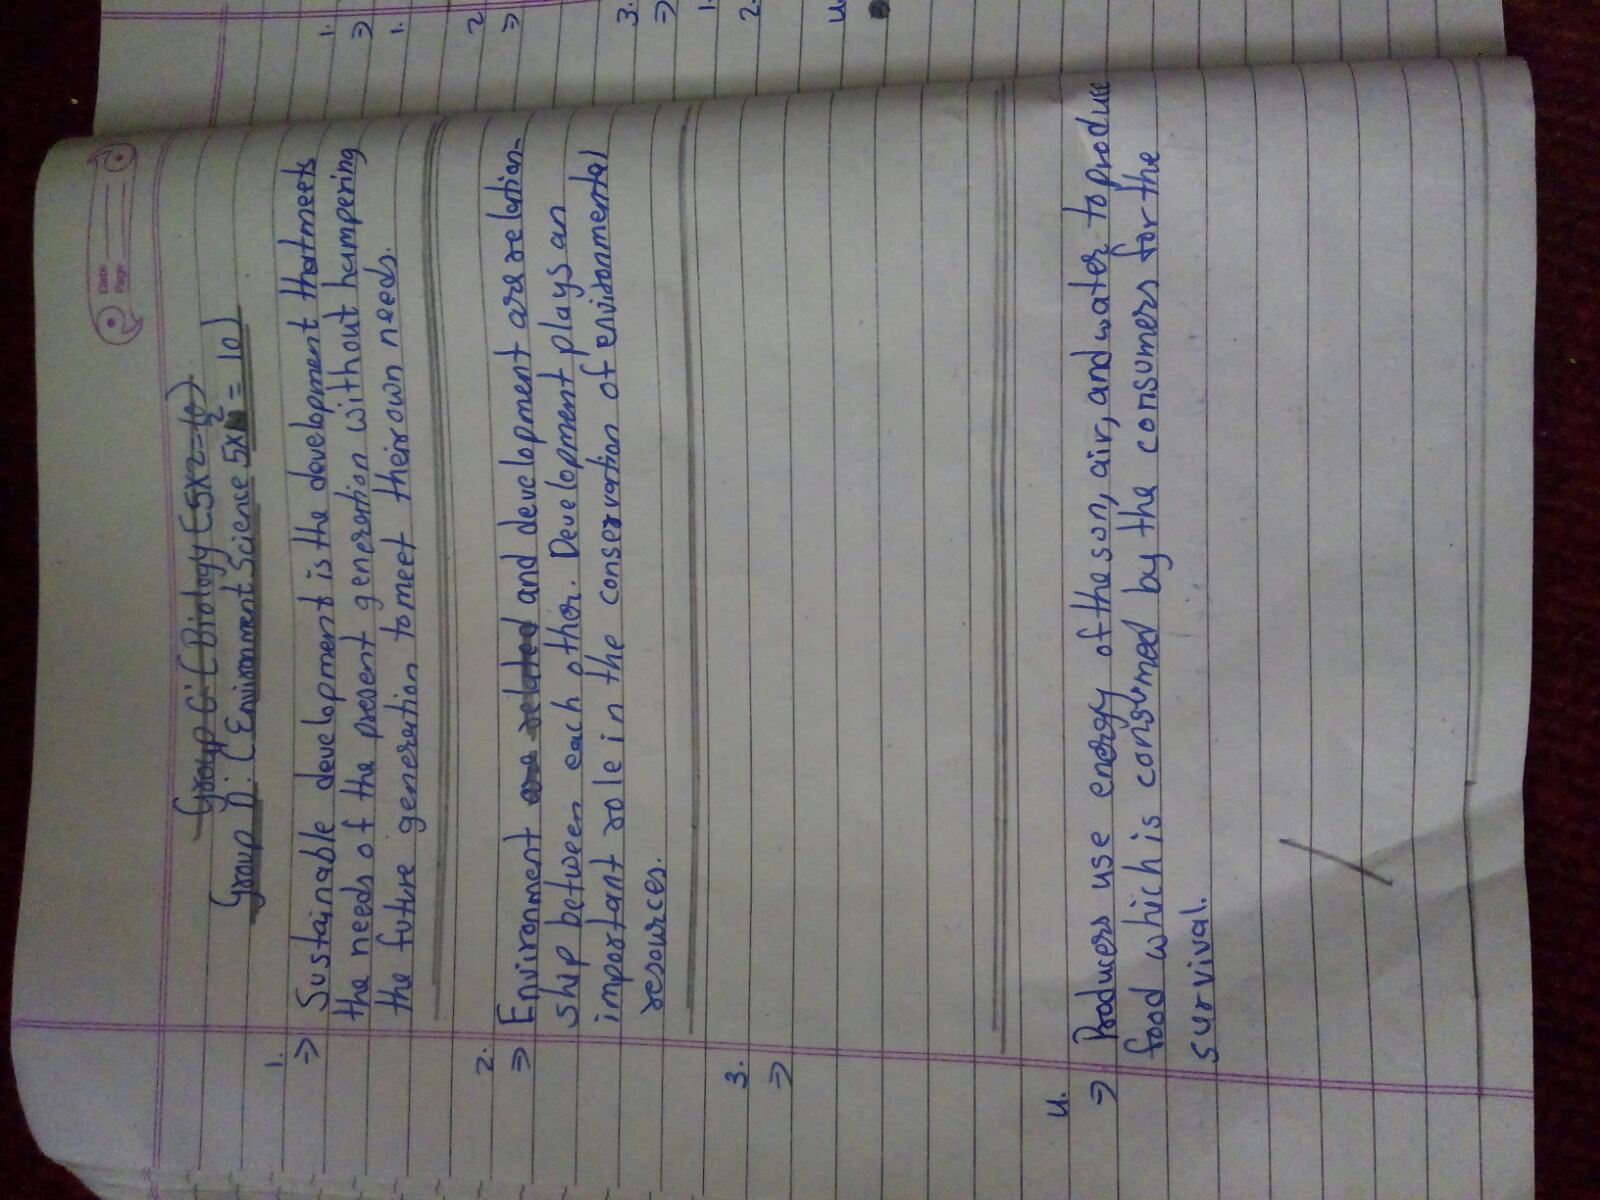 Date
Page
Group C: (Biology (5x2=10)
Group D: (Environment Science 5x2 = 10)
1.
=> Sustainable development is the development that meets
the needs of the present generation without hampering
the future generation to meet their own needs.
2.
=> Environment are related and development are relation-
ship between each other. Development plays an
important role in the conservation of environmental
resources.
3.
=>
4.
=> Producers use energy of the son, air, and water to produce
food which is consumed by the consumers for the
survival.
1.
=>
1.
2
=>
3.
=>
1.
2.
4.